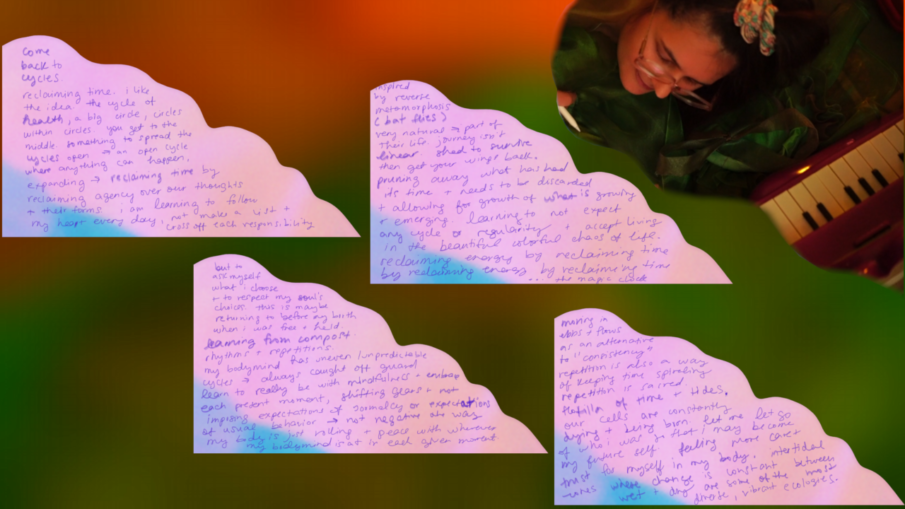 come
back to
cycles
reclaiming time. i like
the idea the cycle of
health, a big circle, circles
within circles. you get to the
middle. something to spread the
cycles open → an open cycle
where anything can happen.
expanding → reclaiming time by
reclaiming agency over our thoughts
+ their forms. i am learning to follow
my heart every day, not make a list +
cross off each responsibility
but to
ask myself
what i choose
+ to respect my soul's
choices. this is maybe
returning to before my birth
when i was free + held.
learning from compost
rhythms + repetitions.
my bodymind has uneven/unpredictable
cycles → always caught off guard
learn to really be with mindfulness + embrace
each present moment, shifting gears + not
imposing expectations of normalcy or expectations
of usual behavior → not negative ate way
my body is just rolling + peace with wherever
my bodymind is at in each given moment
inspired
by reverse
metamorphosis
(bat flies)
very natural → part of
their life journey isn't
linear shed to survive
then get your wings back.
pruning away what has had
its time + needs to be discarded
+ allowing for growth of what is growing
+ emerging learning to not expect
any cycle or regularity + accept living
in the beautiful colorful chaos of life.
reclaiming energy by reclaiming time
by reclaiming energy by reclaiming time
... the magic clock
moving in
ebbs + flows
as an alternative
to "consistency"
repetition is also a way
of keeping time spiraling
repetition is sacred
of time + tides,
our cells are constantly
dying + being born. let me let go
of who i was so that i may become
my future self. feeling more
trust for myself in my body. intertidal
zones where change is constant between
wet + dry are some of the most
diverse, vibrant ecologies.